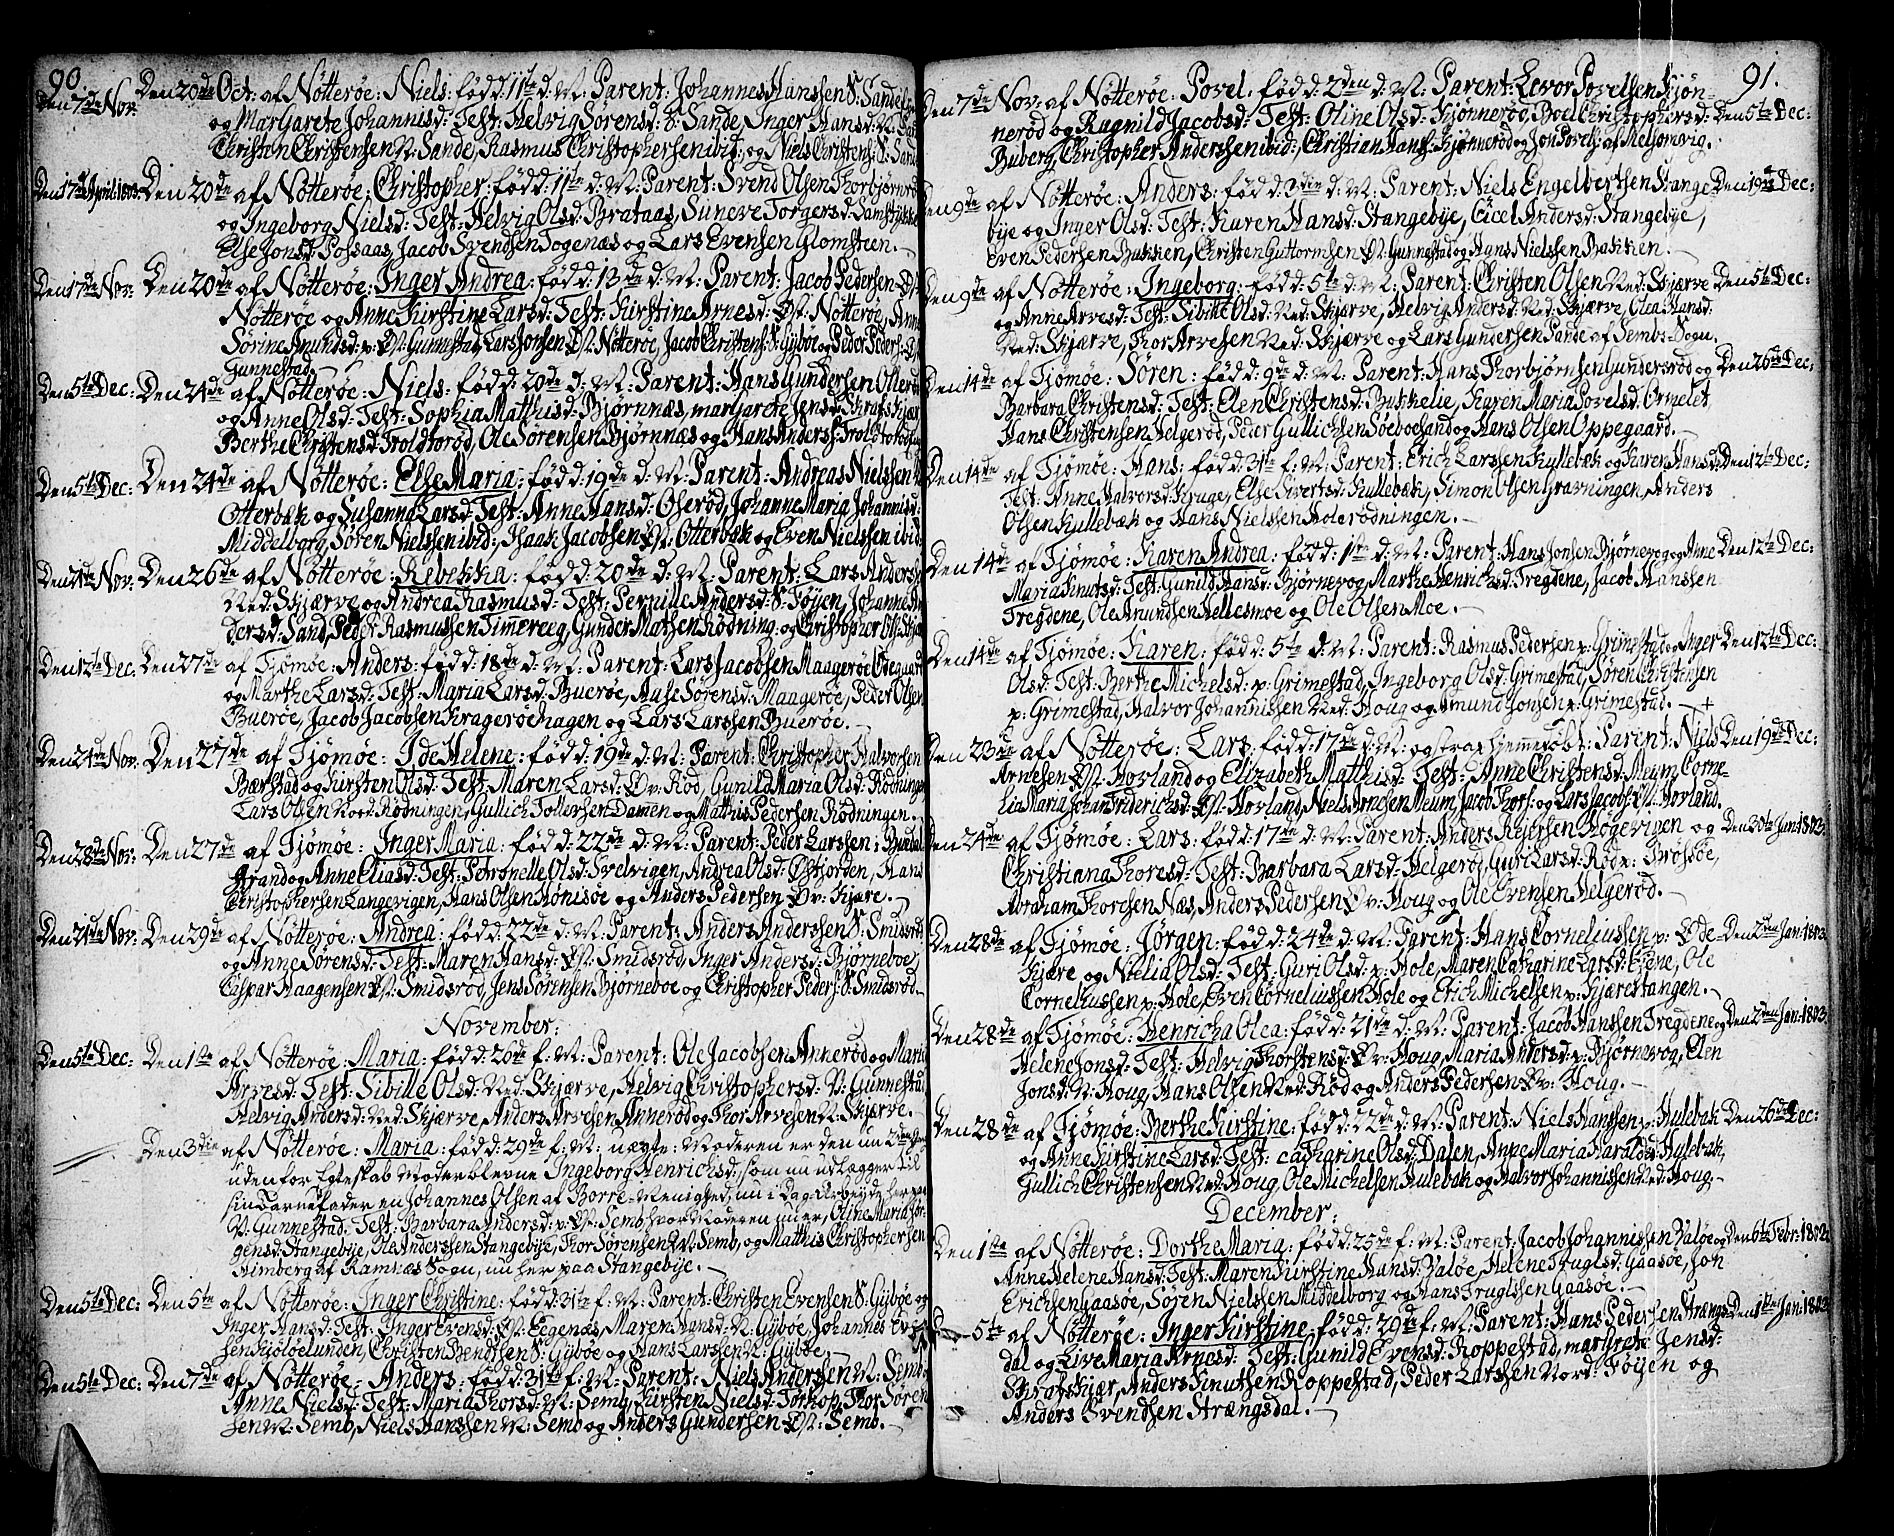 90.
Den 7de Nov: Den 20de Oct: af Nötterøe: Niels: född: 11te d: M: Parent: Johannes Hanssen S: Sande
og Margarete Johannisd: Test: Helvig Sørensd: S: Sande, Inger Hansd: N:
Christen Christensen N: Sande, Rasmus Christophersen ibid: og Niels Christens: S: Sand
Den 17de April: 1803. Den 20de af Nötterøe, Christopher: född: 11te d: M: Parent: Svend Olsen Thorbjørnrö
og Ingeborg Nielsd: Test: Helvig Olsd: Brataas, Suneve Torgersd:
Else Jonsd: Fossaas, Jacob Svendsen Togenæs og Lars Evensen Glomsteen.
Den 17de Nov: Den 20de af Nötterøe: Inger Andrea: född: 13de d: M: Parent: Jacob Pedersen Ø:
Nötterøe og Anne Kirstine Larsd: Test: Kirstine Arnesd: Øst: Nötterøe, Anne
Sørine Amundsd: v: Øst: Gunnestad, Lars Jonsen Øst: Nötterøe, Jacob Christens: S: Gyböe og Peder Peders: Øst
Gunnestad.
Den 5te Dec: Den 24de af Nötterøe: Niels: född: 20de d: M: Parent: Hans Gundersen Olleröd
og Anne Olsd: Test: Sophia Matthisd: Bjørnnæs, margarete Jensd: Skrafskjær
Berthe Christensd: Troldtoröd, Ole Sørensen Bjørnnæs og Hans Anders: Troldtoröd
Den 5te Dec: Den 24de af Nötterøe: Else Maria: född: 19de d: M: Parent: Andreas Nielsen
Otterbæk og Susanna Larsd: Test: Anne Hansd: Oseröd, Johanne Maria Johannisd:
Middelborg, Sören Nielssen ibid:, Isaak Jacobsen Øst: Otterbæk og Even Nielssen ibid:
Den 21de Nov: Den 26de af Nötterøe: Rebekka: född: 20de d: M: Parent: Lars Anders:
Ned: Skjærve og Andrea Rasmusd: Test: Pernille Andersd: S: Föyen, Johanne An
dersd: Sand, Peder Rasmussen Timmereeg, Gunder Mathsen Rödning og Christopher
Den 12te Dec: Den 27de af Tjömöe: Anders: född: 18de d: M: Parent: Lars Jacobsen Maageröe Ödegaard
og Marthe Larsd: Test: Maria Larsd: Bueröe, Aase Sørensd: Maageröe, Peder Olsen
Bueröe, Jacob Jacobsen Krageröehagen og Lars Larssen Bueröe.
Den 24de Nov: Den 27de af Tjömöe: Ide Helene: född: 19de d: M: Parent: Christopher Halvorsen
Bærstad og Kirsten Olsd: Test: Maren Larsd: Øv: Röd, Gunild Maria Olsd: Rödningen
Lars Olsen Nord: Rödningen, Gullich Tollefsen Damen og Mathis Pedersen Rödningen.
Den 28de Nov: Den 27de af Tjömöe: Inger Maria: född: 22de d: M: Parent: Peder Larssen:
Strand og Anne Eliasd: Test: Petronelle Olsd: Svelvigen, Andrea Olsd: Østjorden, Hans
Christophersen Langevigen, Hans Olsen Hönisöe og Anders Pedersen Øv: Kjære.
Den 21de Nov: Den 29de af Nötterøe: Andrea: född: 22de d: M: Parent: Anders Anderssen S: Smidsröd
og Anne Sørensd: Test: Maren Hansd: Øst: Smidsröd, Inger Andersd: Bjørneboe,
Caspar Haagensen Øst: Smidsröd, Jens Sørensen Bjørneboe og Christopher Peders: S: Smidsröd.
November:
Den 5te Dec: Den 1ste af Nötterøe: Maria: född: 26de f: M: Parent: Ole Jacobsen Anneröd og Maria
Arvesd: Test: Sibille Olsd: Ned: Skjærve, Helvig Christophersd: V: Gunnestad
Helvig Andersd: Ned: Skjærve, Anders Arvesen Anneröd og Thor Arvesen N: Skjærve.
Den 3die af Nötterøe: Maria: född: 29de f: M: uægte: Moderen er den nu 2den
udenfor Egteskab Moder blevne Ingeborg Henrichsd:, som nu udlægger til
sin Barnefader en Johannes Olsen af Borre-Menighed, nu i Dag-Arbejde her paa
V: Gunnestad. Test: Barbara Andersd: v: Øst: Semb, hvor Moderen nu er, Oline Maria Jør-
gensd: Stangebye, Ole Anderssen Stangebye, Thor Sørensen V: Semb, og Matthis Christophersen
Himberg af Ramnæs Sogn, nu her paa Stangebye.
Den 5te Dec: Den 5te af Nötterøe: Inger Christine: född: 31te f: M: Parent: Christen Evensen S: Gyböe og
Inger Hansd: Test: Inger Evensd: Øst: Eegenæs, Maren Hansd: N: Gyböe, Johannes
sen Kjölöelunden, Christen Bendtsen S: Gyböe og Hans Larssen N: Gyböe.
Den 5te Dec: Den 7de af Nötterøe: Anders: född: 31te f: M: Parent: Niels Anderssen V: Semb
Anne Nielsd: Test: Maria Thorsd: V: Semb, Kirsten Nielsd: Torkop, Thor Sören
sen V: Semb, Niels Hanssen V: Semb og Anders Gundersen Øst: Semb.
91.
Den 7de Nov: af Nötterøe: Povel: född: 2den d: M: Parent: Levor Povelsen Kjøn-
neröd og Ragnild Jacobsd: Test: Oline Olsd: Kjönneröd, Boel Christophersd: Den 5te Dec:
Buberg, Christopher Anderssen ibid:, Christian Hans: Kjönneröd og Jon Povels: af Melsomvig.
Den 9de af Nötterøe: Anders: född: 3die d: M: Parent: Niels Engelbertsen Stange Den 19de Dec:
bye og Inger Olsd: Test: Karen Hansd: Stangebye, Cicel Andersd: Stangebye,
Even Pedersen Bakken, Christen Guttormsen Øst: Gunnestad og Hans Nielssen Bakken.
Den 9de af Nötterøe: Ingeborg: född: 5te d: M: Parent: Christen Olsen Ned: Skjærve Den 5te Dec:
og Anne Arvesd: Test: Sibille Olsd: Ned: Skjærve, Helvig Andersd: Ned: Skjærve, Olea Hansd:
Ned: Skjærve, Thor Arvesen Ned: Skjærve og Lars Gundersen Sande af Sembs-Sogn.
Den 14de af Tjömöe: Sören: född: 9de d: M: Parent: Hans Thorbjörnsen Gundersröd og Den 26de Dec:
Barbara Christensd: Test: Elen Christensd: Bukkelie, Karen Maria Povelsd: Ormelet
Hans Christensen Helgeröd, Peder Gullichsen Söeboesand og Hans Olsen Oppegaard.
Den 14de af Tjömöe: Hans: född: 31te f: M: Parent: Erich Larssen Kullebæk og Karen Hansd: Den 12te Dec:
Test: Anne Halvorsd: Kruge, Else Sivertsd: Kullebæk, Simon Olsen Gravningen, Anders
Olsen Kullebæk og Hans Nielssen Holerödningen.
Den 14de af Tjömöe: Karen Andrea: född: 1ste d: M: Parent: Hans Jonsen Bjørnevog og Anne Den 12te Dec:
Maria Knutsd: Test: Gunild Hansd: Bjørnevog, Marthe Henrichsd: Tregdene, Jacob Hanssen
Tregdene, Ole Amundsen Hellesmoe og Ole Olsen Moe.
Den 14de af Tjömöe: Karen: född: 5te d: M: Parent: Rasmus Pedersen v: Grimestad og Inger Den 12te Dec:
Olsd: Test: Berthe Michelsd: v: Grimestad, Ingeborg Olsd: Grimestad, Sören Christensen
v: Grimestad, Halvor Johannissen Ned: Houg og Amund Jonsen v: Grimestad. +
Den 23de af Nötterøe: Lars: född: 17de d: M: og strax hjemmedöbt: Parent: Niels Den 19de Dec:
Arnesen Øst: Hovland og Elizabeth Matthisd: Test: Anne Christensd: Meum, Corne-
lia Maria Johan Friderichsd: Øst: Hovland, Niels Arnesen Meum, Jacob Thors: og Lars Jacobs: Øst: Hovland.
Den 24de af Tjömöe: Lars: född: 17de d: M: Parent: Anders Rejersen Kögevigen og Den 30te Jan: 1803.
Christiana Thoresd: Test: Barbara Larsd: Helgeröd, Guri Larsd: Röd v: Brössöe,
Abraham Thoresen Næs, Anders Pedersen Øv: Houg og Ole Evensen Helgeröd.
Den 28de af Tjömöe: Jørgen: född: 24de d: M: Parent: Hans Corneliussen v: Øde- Den 2den Jan: 1803.
Kjære og Nielia Olsd: Test: Guri Olsd: v: Hole, Maren Catharine Larsd: Eyene, Ole
Corneliussen v: Hole, Even Corneliussen Hole og Erich Michelsen v: Kjærestangen.
Den 28de af Tjömöe: Henricha Olea: född: 21de d: M: Parent: Jacob Hanssen Tregdene og Den 2den Jan: 1803.
Helene Jonsd: Test: Helvig Thorstensd: Øv: Houg, Maria Andersd: v: Bjørnevog, Elen
Jonsd: N: Houg, Hans Olsen Ned: Röd og Anders Pedersen Øv: Houg.
Den 28de af Tjömöe: Berthe Kirstine: född: 22de d: M: Parent: Niels Hanssen v: Hulebak Den 26de Dec:
og Anne Kirstine Larsd: Test: Catharine Olsd: Dalen, Anne Maria Haraldsd: Hulebak,
Gullich Christensen Ned: Houg, Ole Michelsen Hulebak og Halvor Johannissen Ned: Houg.
December:
Den 1ste af Nötterøe: Dorthe Maria: född: 25de f: M: Parent: Jacob Johannissen Valöe og Den 6te Febr: 1803.
Anne Helene Hansd: Test: Maren Kirstine Hansd: Valöe, Helene Truglsd: Gaasöe, Jon
Erichsen Gaasöe, Sören Nielssen Middelborg og Hans Truglssen Gaasöe.
5te af Nötterøe: Inger Kirstine: född: 29de f: M: Parent: Hans Pedersen Strængs- Den 1ste Jan: 1803.
dal og Live Maria Arnesd: Test: Gunild Evensd: Roppestad, margrete Jensd:
Skrafskjær, Anders Knutsen Roppestad, Peder Larssen Nord: Föyen og
Anders Svendsen Strængsdal.